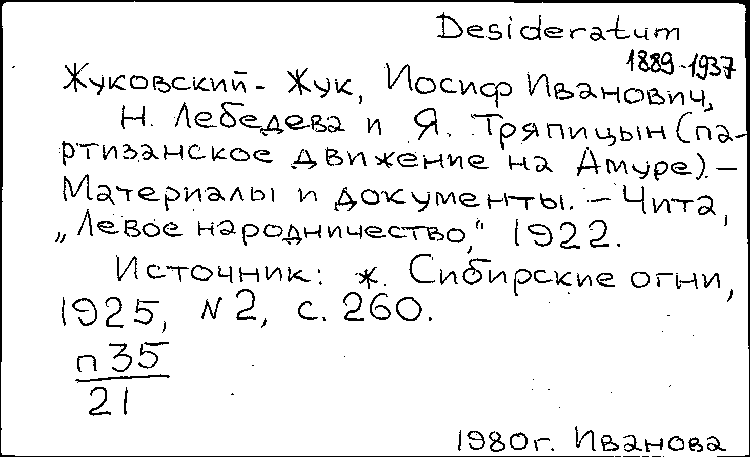 Desideratum
1889-1937
Жуковский-Жук, Иосиф Иванович,
Н. Лебедева и Я. Тряпицын (па-
ртизанское движение на Амуре).–
Материалы и документы. – Чита,
„Левое народничество," 1922.
Источник: ж. Сибирские огни,
1925, N 2, с. 260.
п 35
21
1980г. Иванова